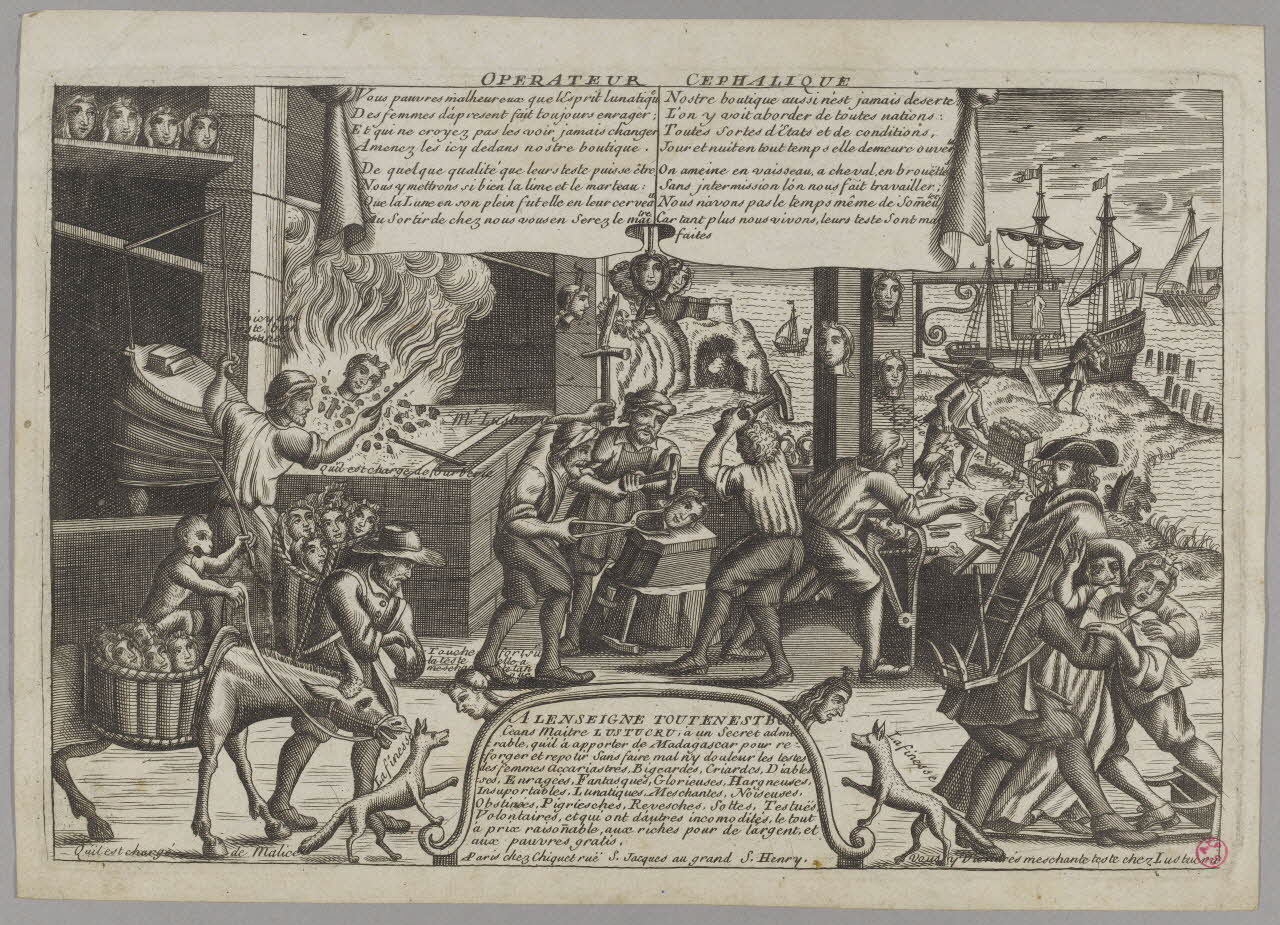 OPERATEUR CEPHALIQUE
Vous pauvres malheureux que l'Esprit lunatiqu
Des femmes d'apresent fait toujours enrager;
Et qui ne croyez pas les voir jamais changer
Amenez les icy dedans nostre boutique.
De quelque qualité que leurs teste puisse être
Nous y mettrons si bien la lime et le marteau:
Que la Lune en son plein fut elle en leur cervea
Au Sortir de chez nous vous en Serez le maitre
Nostre boutique aussi n'est jamais deserte,
L'on y voit aborder de toutes nations:
Toutes Sortes d'états et de conditions,
Jour et nuit en tout temps elle demeure ouver
On ameine en vaisseau, a cheval, en brouëtte
Sans jntermission l'on nous fait travailler;
Nous n'avons pas le temps même de Someil
Car tant plus nous vivons, leurs teste Sont ma
faites
Mr. Lustucru
Qu'il est chargé de fourberie
Touche
la teste
meschan
La finesse
La finesse
A LENSEIGNE TOUT EN EST BON
Céans Maitre LUSTUCRU, a un Secret admi
rable, qu'il à apporter de Madagascar pour re-
forger et repolir Sans faire mal n'y douleur les testes
des femmes Accariastres, Bigeardes, Criardes, Diables
ses, Enragées, Fantasques, Glorieuses, Hargneuses,
Insuportables, Lunatiques, Meschantes, Noiseuses,
Obstinées, Pigriesches, Revesches, Sottes, Testües
Volontaires, et qui ont d'autres incomodités, le tout
a prix raisonable, aux riches pour de l'argent, et
aux pauvres gratis.
AParis chez Chiquet ruë S. Jacques au grand S. Henry.
Qu'il est chargé de Malice
Vous y Viendrés meschante teste chez Lustucru